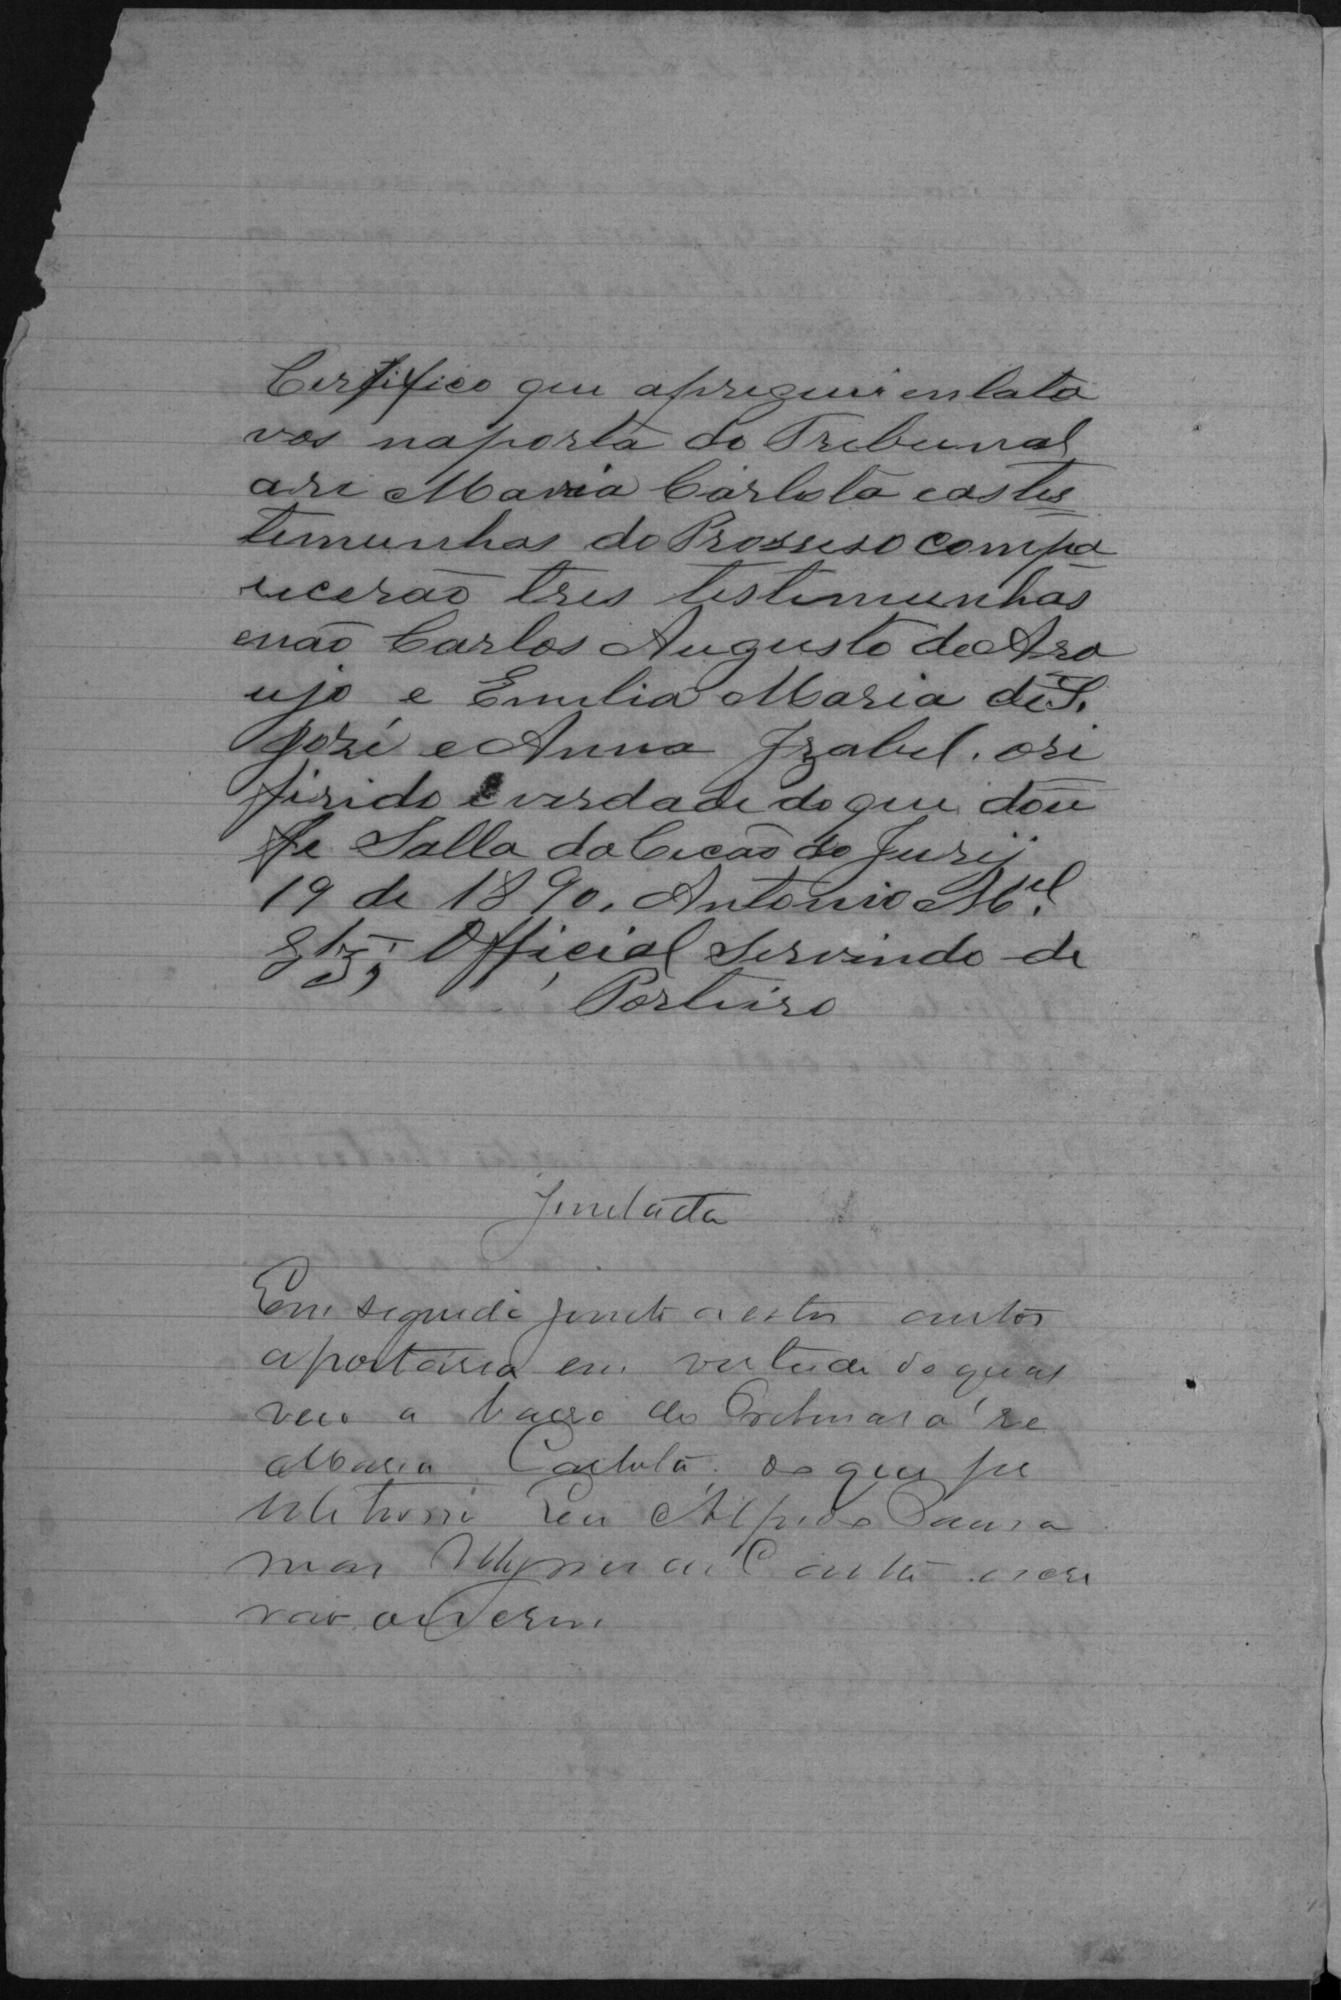 Certifico que apreguei en lata
vos naporta do Tribunal
a re Maria Carlota e as tes
temunhas do Prossesso compa
recerão tres testimunhas
enão Carlos Augusto de Ara
ujo e Emilia Maria de S.
José e Anna Izabel. ore
firido é verdade do que dou
fe Salla da Ceção do Jury
19 de 1890. Antonio Mel.
Official Servindo de
Porteiro
Juntada
Em seguida junto a estes autos
aportaria em virtude do qual
veio a barra do a re
Maria Carlota. do que fis
este termo Eu Alfredo
de escri
vão o escrevi